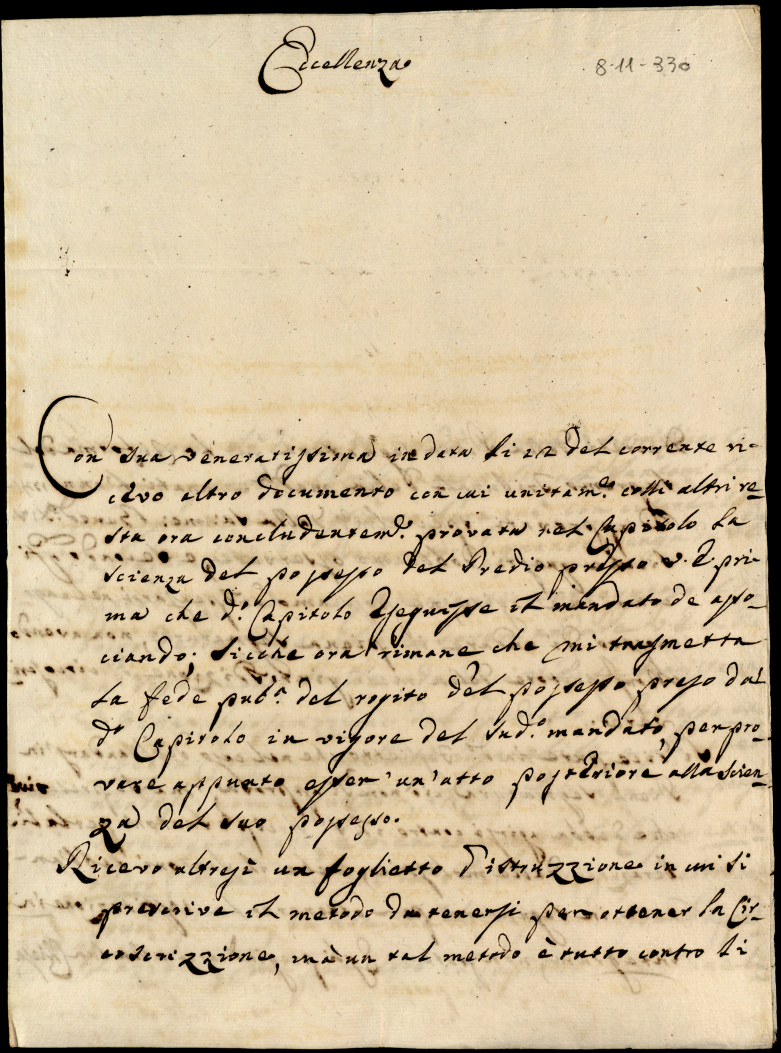 Eccellenza
8-11-330
Con sua veneratissima in data li 22 del corrente ri-
cevo altro documento con cui unitam.e colli altri re-
sta ora concludentem.e provata nel Capitolo la
scienza del possesso del Predio presso V. E. pri-
ma che d.o Capitolo eseguisse il mandato de asso-
ciando; sicchè ora rimane che mi trasmetta
la fede pub.a del rogito del possesso preso dal
d.o Capitolo in vigore del sud.o mandato, per pro-
vare appunto esser' un' atto posteriore alla scien-
za del suo possesso.
Ricevo altresi un foglietto d'istruzzione in cui si
prescrive il metodo da tenersi per ottener la Cir-
coscrizzione, mà un tal metodo è tutto contro li